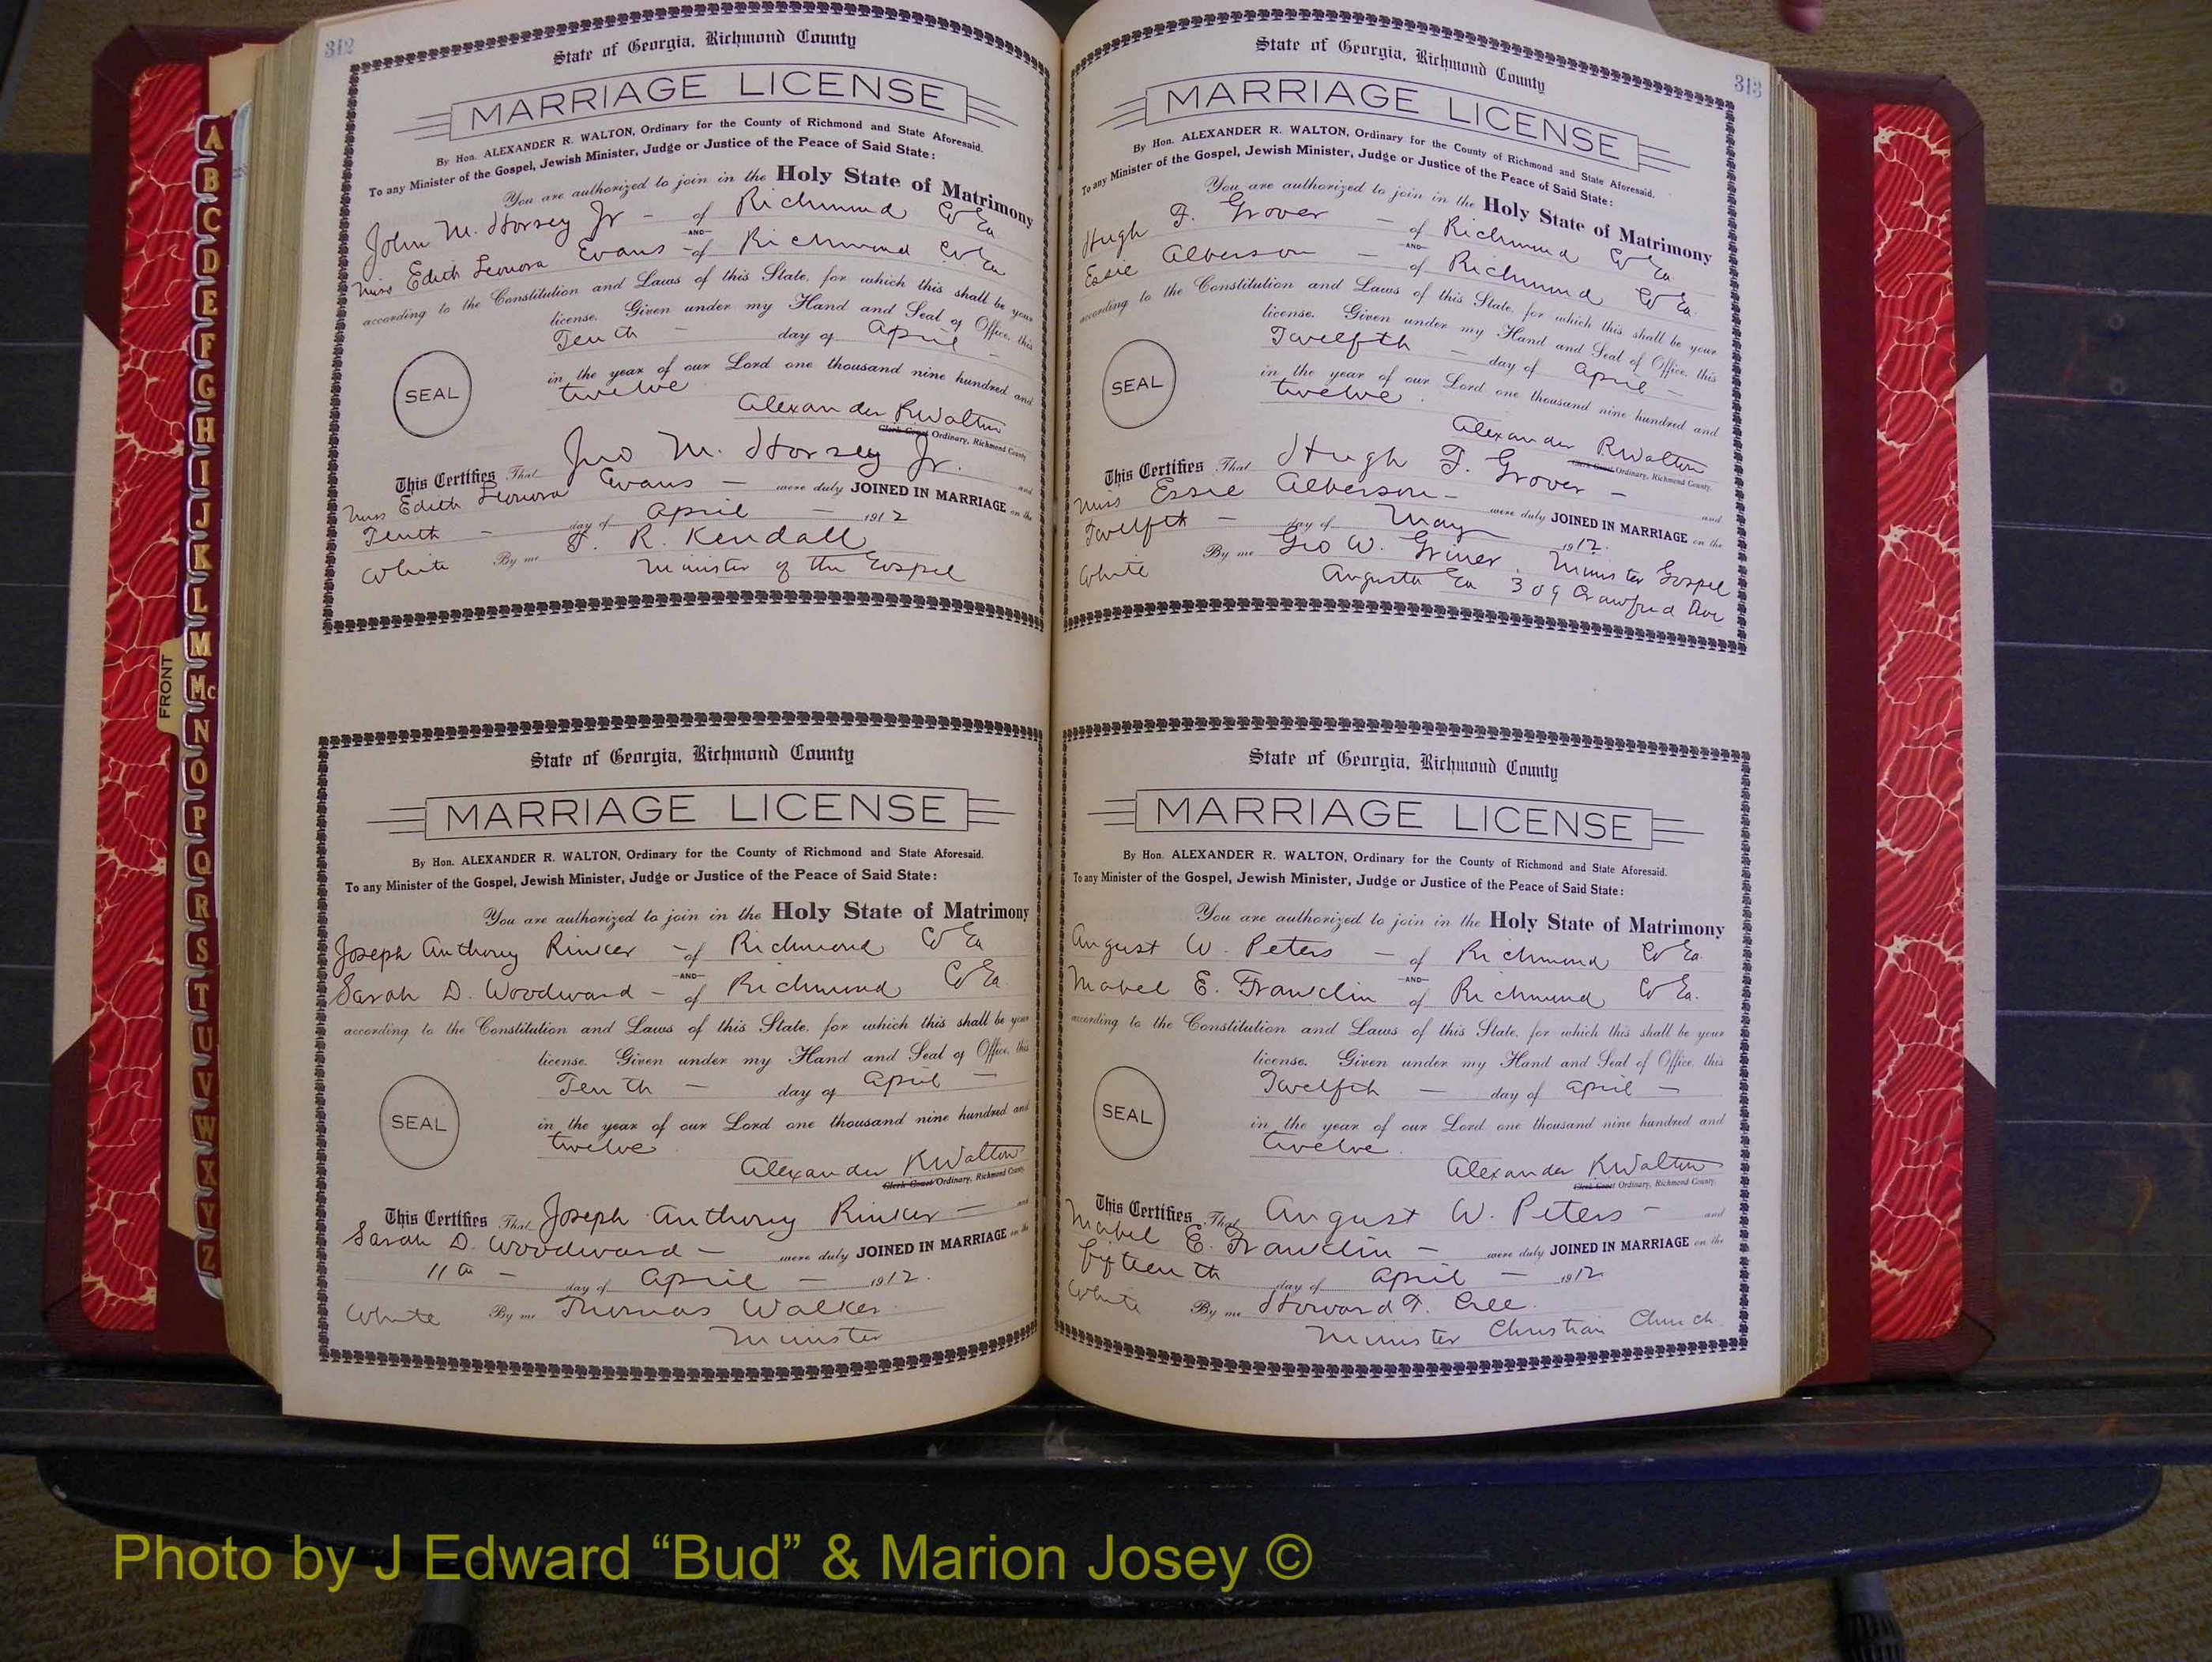 312
State of Georgia, Richmond County
MARRIAGE LICENSE
By Hon. ALEXANDER R. WALTON, Ordinary for the County of Richmond and State Aforesaid.
To any Minister of the Gospel, Jewish Minister, Judge or Justice of the Peace of Said State:
You are authorized to join in the Holy State of Matrimony
John M. Horsey Jr - of Richmond Co Ga
AND
Miss Edith Leonora Evans - of Richmond Co Ga
according to the Constitution and Laws of this State, for which this shall be your
license. Given under my Hand and Seal of Office, this
Tenth - day of April -
in the year of our Lord one thousand nine hundred and
twelve
SEAL
Alexander R Walton
Clerk Court Ordinary, Richmond County
This Certifies That Jno M. Horsey Jr. and
Miss Edith Leonora Evans - were duly JOINED IN MARRIAGE on the
Tenth - day of April - 1912
White By me J. R. Kendall
Minister of the Gospel
State of Georgia, Richmond County
MARRIAGE LICENSE
By Hon. ALEXANDER R. WALTON, Ordinary for the County of Richmond and State Aforesaid.
To any Minister of the Gospel, Jewish Minister, Judge or Justice of the Peace of Said State:
You are authorized to join in the Holy State of Matrimony
Joseph Anthony Rinker - of Richmond Co Ga
AND
Sarah D. Woodward - of Richmond Co Ga.
according to the Constitution and Laws of this State, for which this shall be your
license. Given under my Hand and Seal of Office, this
Tenth - day of April -
in the year of our Lord one thousand nine hundred and
twelve
SEAL
Alexander R Walton
Clerk Court Ordinary, Richmond County
This Certifies That Joseph Anthony Rinker - and
Sarah D. Woodward - were duly JOINED IN MARRIAGE on the
11th - day of April - 1912.
White By me Thomas Walker
Minister
313
State of Georgia, Richmond County
MARRIAGE LICENSE
By Hon. ALEXANDER R. WALTON, Ordinary for the County of Richmond and State Aforesaid.
To any Minister of the Gospel, Jewish Minister, Judge or Justice of the Peace of Said State:
You are authorized to join in the Holy State of Matrimony
Hugh F. Grover - of Richmond Co Ga.
AND
Essie Alberson - of Richmond Co Ga.
according to the Constitution and Laws of this State, for which this shall be your
license. Given under my Hand and Seal of Office, this
Twelfth - day of April -
in the year of our Lord one thousand nine hundred and
twelve.
SEAL
Alexander R Walton
Clerk Court Ordinary, Richmond County.
This Certifies That Hugh F. Grover - and
Miss Essie Alberson - were duly JOINED IN MARRIAGE on the
Twelfth - day of May 1912.
White By me Geo W. Griner, Minister Gospel
Augusta Ga 309 Crawford Ave
State of Georgia, Richmond County
MARRIAGE LICENSE
By Hon. ALEXANDER R. WALTON, Ordinary for the County of Richmond and State Aforesaid.
To any Minister of the Gospel, Jewish Minister, Judge or Justice of the Peace of Said State:
You are authorized to join in the Holy State of Matrimony
August W. Peters - of Richmond Co Ga.
AND
Mabel E. Franklin of Richmond Co Ga.
according to the Constitution and Laws of this State, for which this shall be your
license. Given under my Hand and Seal of Office, this
Twelfth - day of April -
in the year of our Lord one thousand nine hundred and
twelve.
SEAL
Alexander R Walton
Clerk Court Ordinary, Richmond County.
This Certifies That August W. Peters - and
Mabel E. Franklin - were duly JOINED IN MARRIAGE on the
fifteenth day of April - 1912
White By me Howard T. Cree.
Minister Christian Church
FRONT
A
B
C
D
E
F
G
H
I
J
K
L
M
Mc
N
O
P
Q
R
S
T
U
V
W
X
Y
Z
Photo by J Edward “Bud” & Marion Josey ©